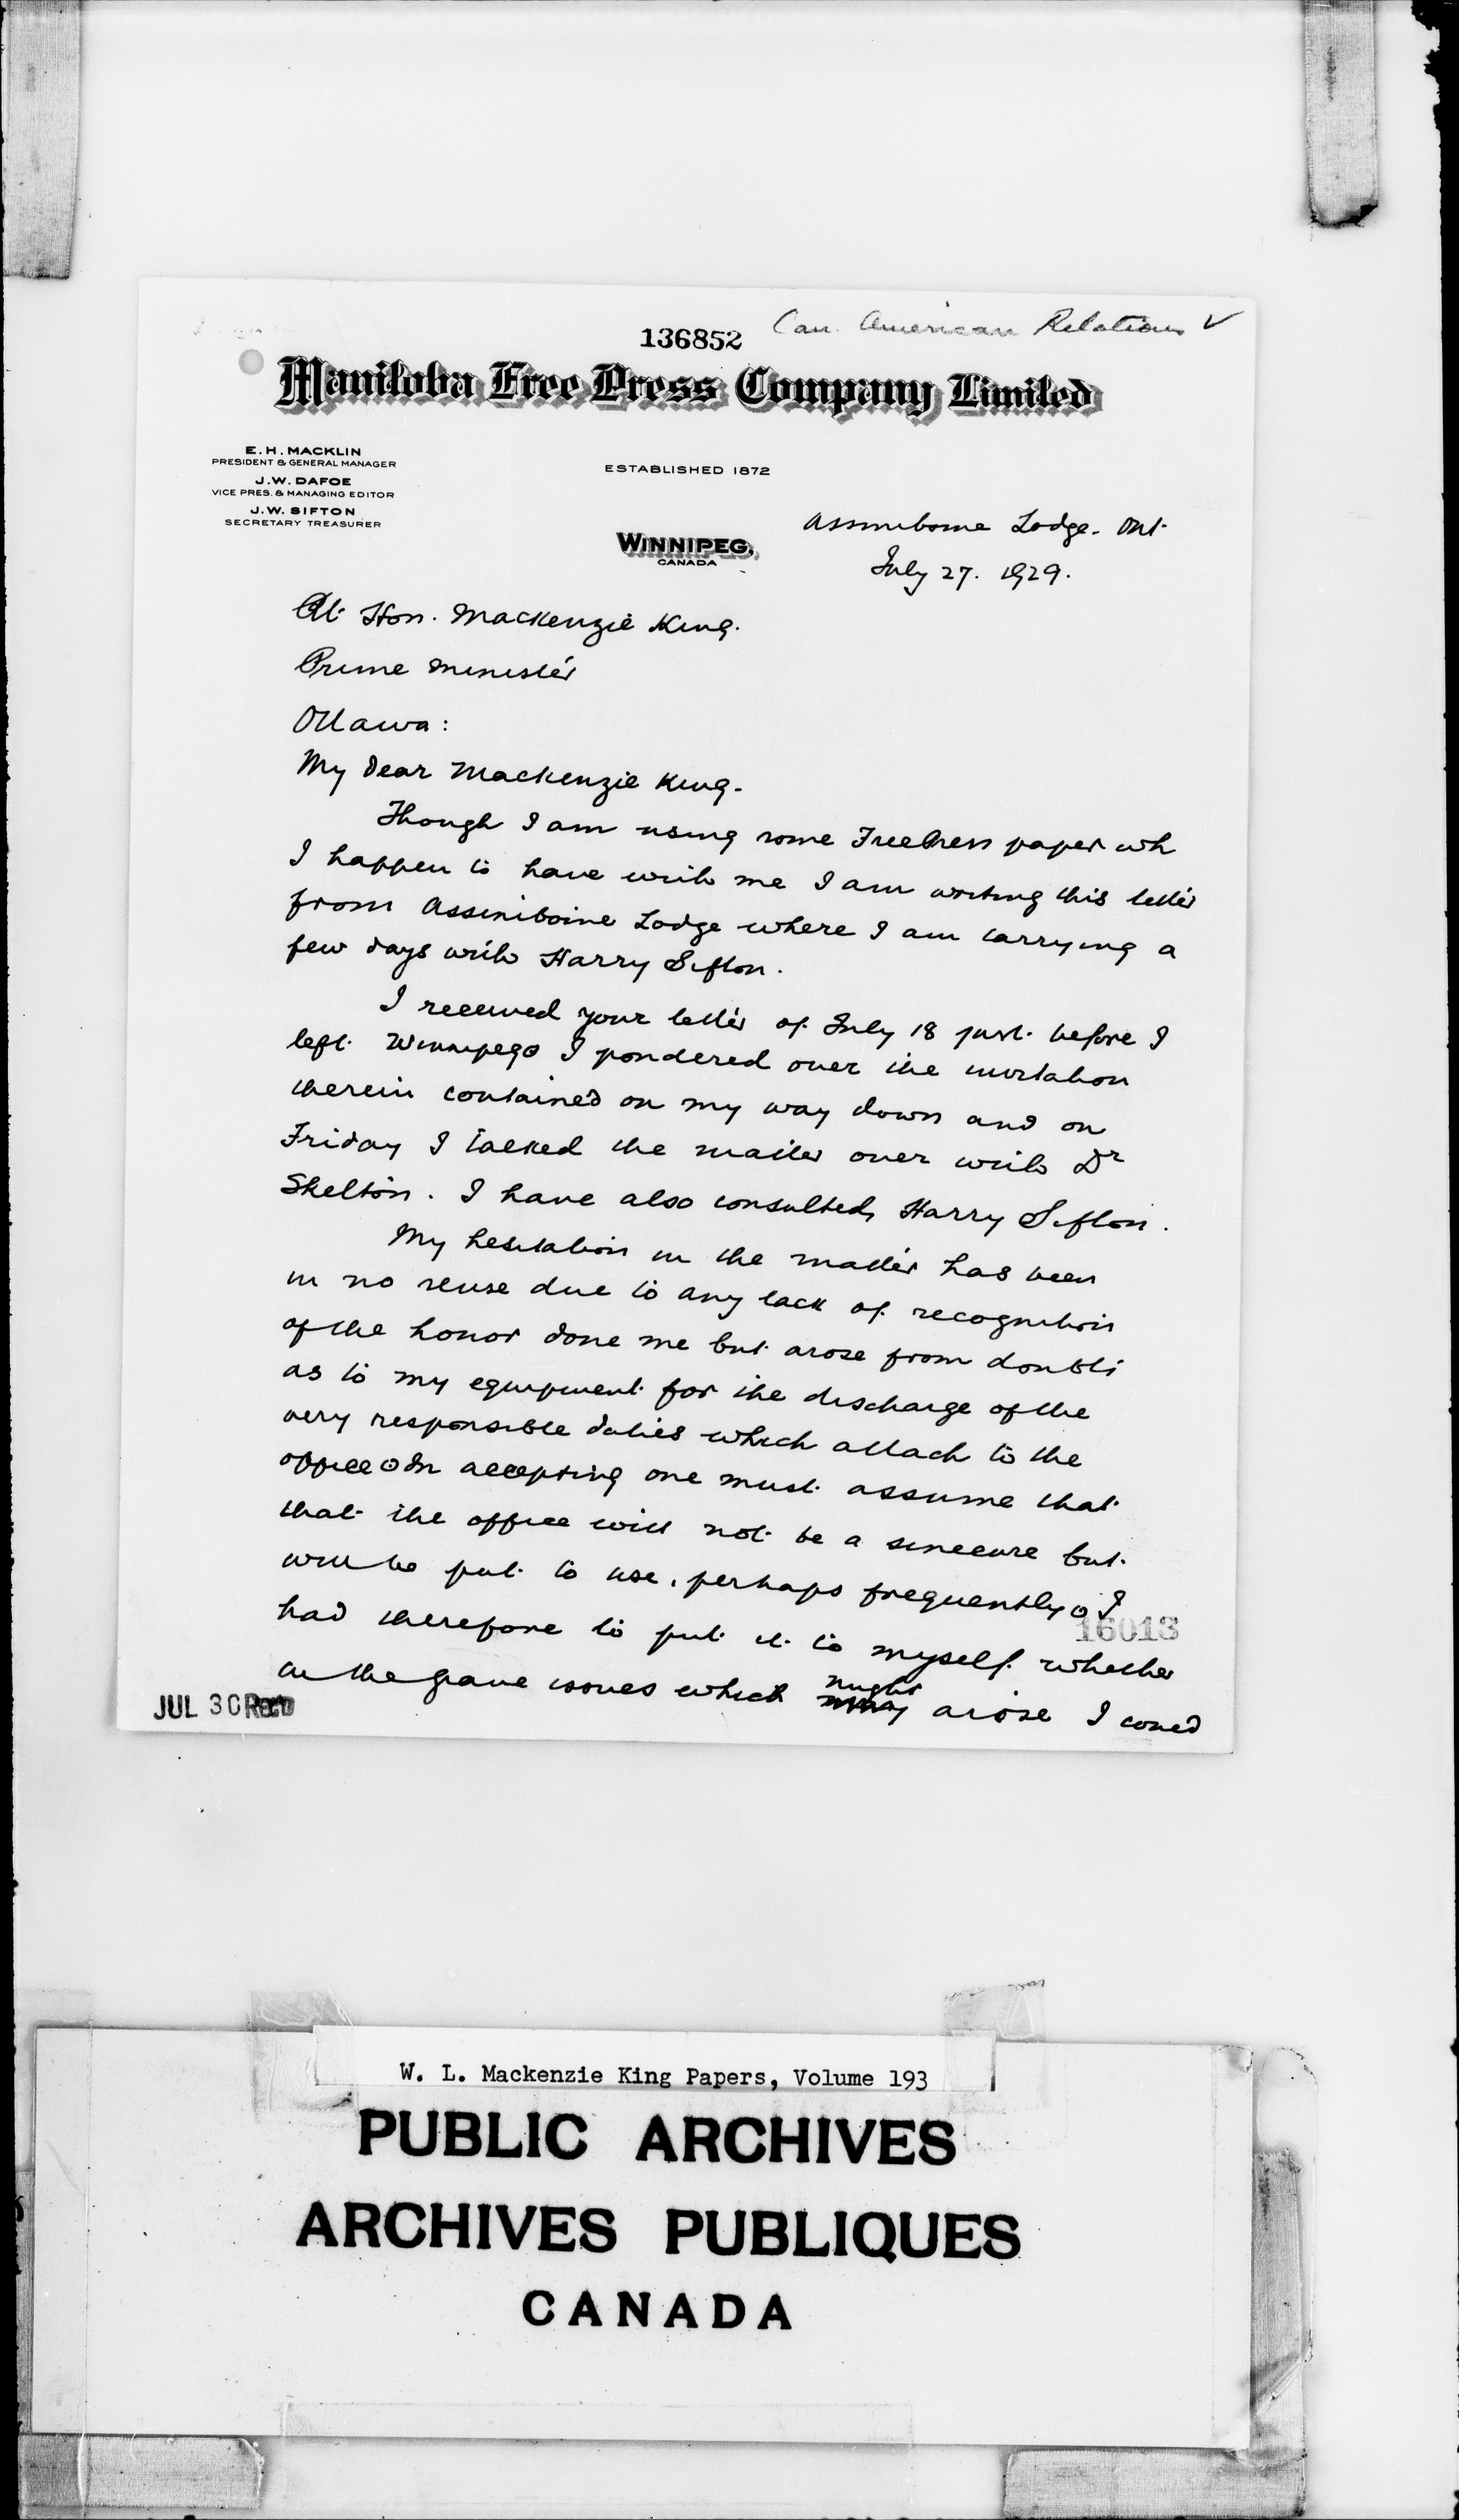 136852
Can. American Relations ✓
Manitoba Free Press Company Limited
E. H. MACKLIN
PRESIDENT & GENERAL MANAGER
J. W. DAFOE
VICE PRES. & MANAGING EDITOR
J. W. SIFTON
SECRETARY TREASURER
ESTABLISHED 1872
WINNIPEG,
CANADA
Assiniboine Lodge. Ont.
July 27. 1929.
Rt. Hon. Mackenzie King.
Prime Minister
Ottawa:
My dear Mackenzie King.
Though I am using some Free Press paper wh
I happen to have with me I am writing this letter
from Assiniboine Lodge where I am tarrying a
few days with Harry Sifton.
I received your letter of July 18 just before I
left Winnipeg. I pondered over the invitation
therein contained on my way down and on
Friday I talked the matter over with Dr
Skelton. I have also consulted Harry Sifton.
My hesitation in the matter has been
in no sense due to any lack of recognition
of the honor done me but arose from doubts
as to my equipment for the discharge of the
very responsible duties which attach to the
office. In accepting one must assume that
that the office will not be a sinecure but
will be put to use, perhaps frequently. I
had therefore to put it to myself whether
16013
in the grave issues which might arise I could
JUL 30 Rec'd
W. L. Mackenzie King Papers, Volume 193
PUBLIC ARCHIVES
ARCHIVES PUBLIQUES
CANADA